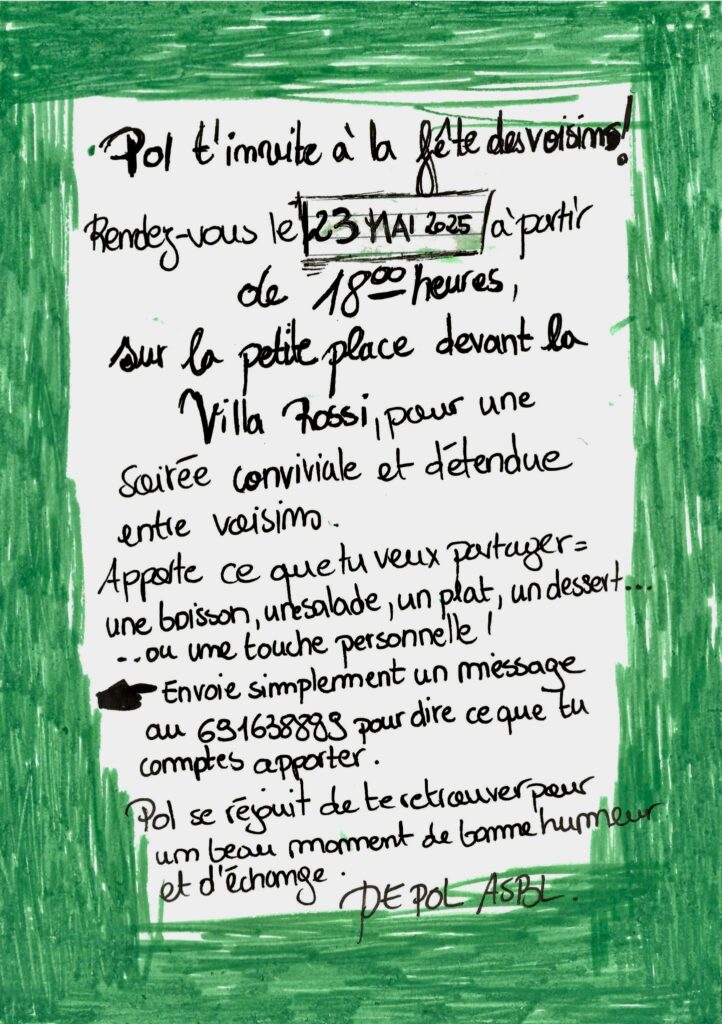 Pol t'invite à la fête des voisins!
Rendez-vous le 23 MAI 2025 à partir
de 18 00 heures,
sur la petite place devant la
Villa Rossi, pour une
soirée conviviale et détendue
entre voisins.
Apporte ce que tu veux partager =
une boisson, une salade, un plat, un dessert...
...ou une touche personnelle!
Envoie simplement un message
au 691638889 pour dire ce que tu
comptes apporter.
Pol se réjouit de te retrouver pour
un beau moment de bonne humeur
et d'échange.
DE POL ASBL.